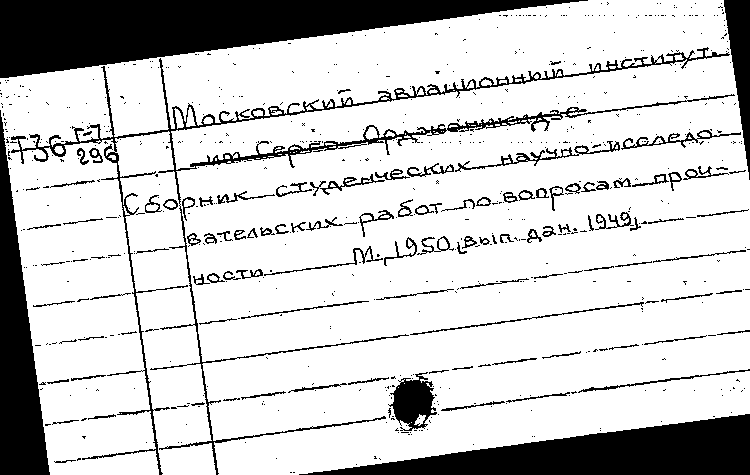 Московский авиационный институт.
Т36 Г-7
296
им Серго Орджоникидзе
Сборник студенческих научно-исследо-
вательских работ по вопросам проч-
ности. М., 1950, [вып. дан. 1949].